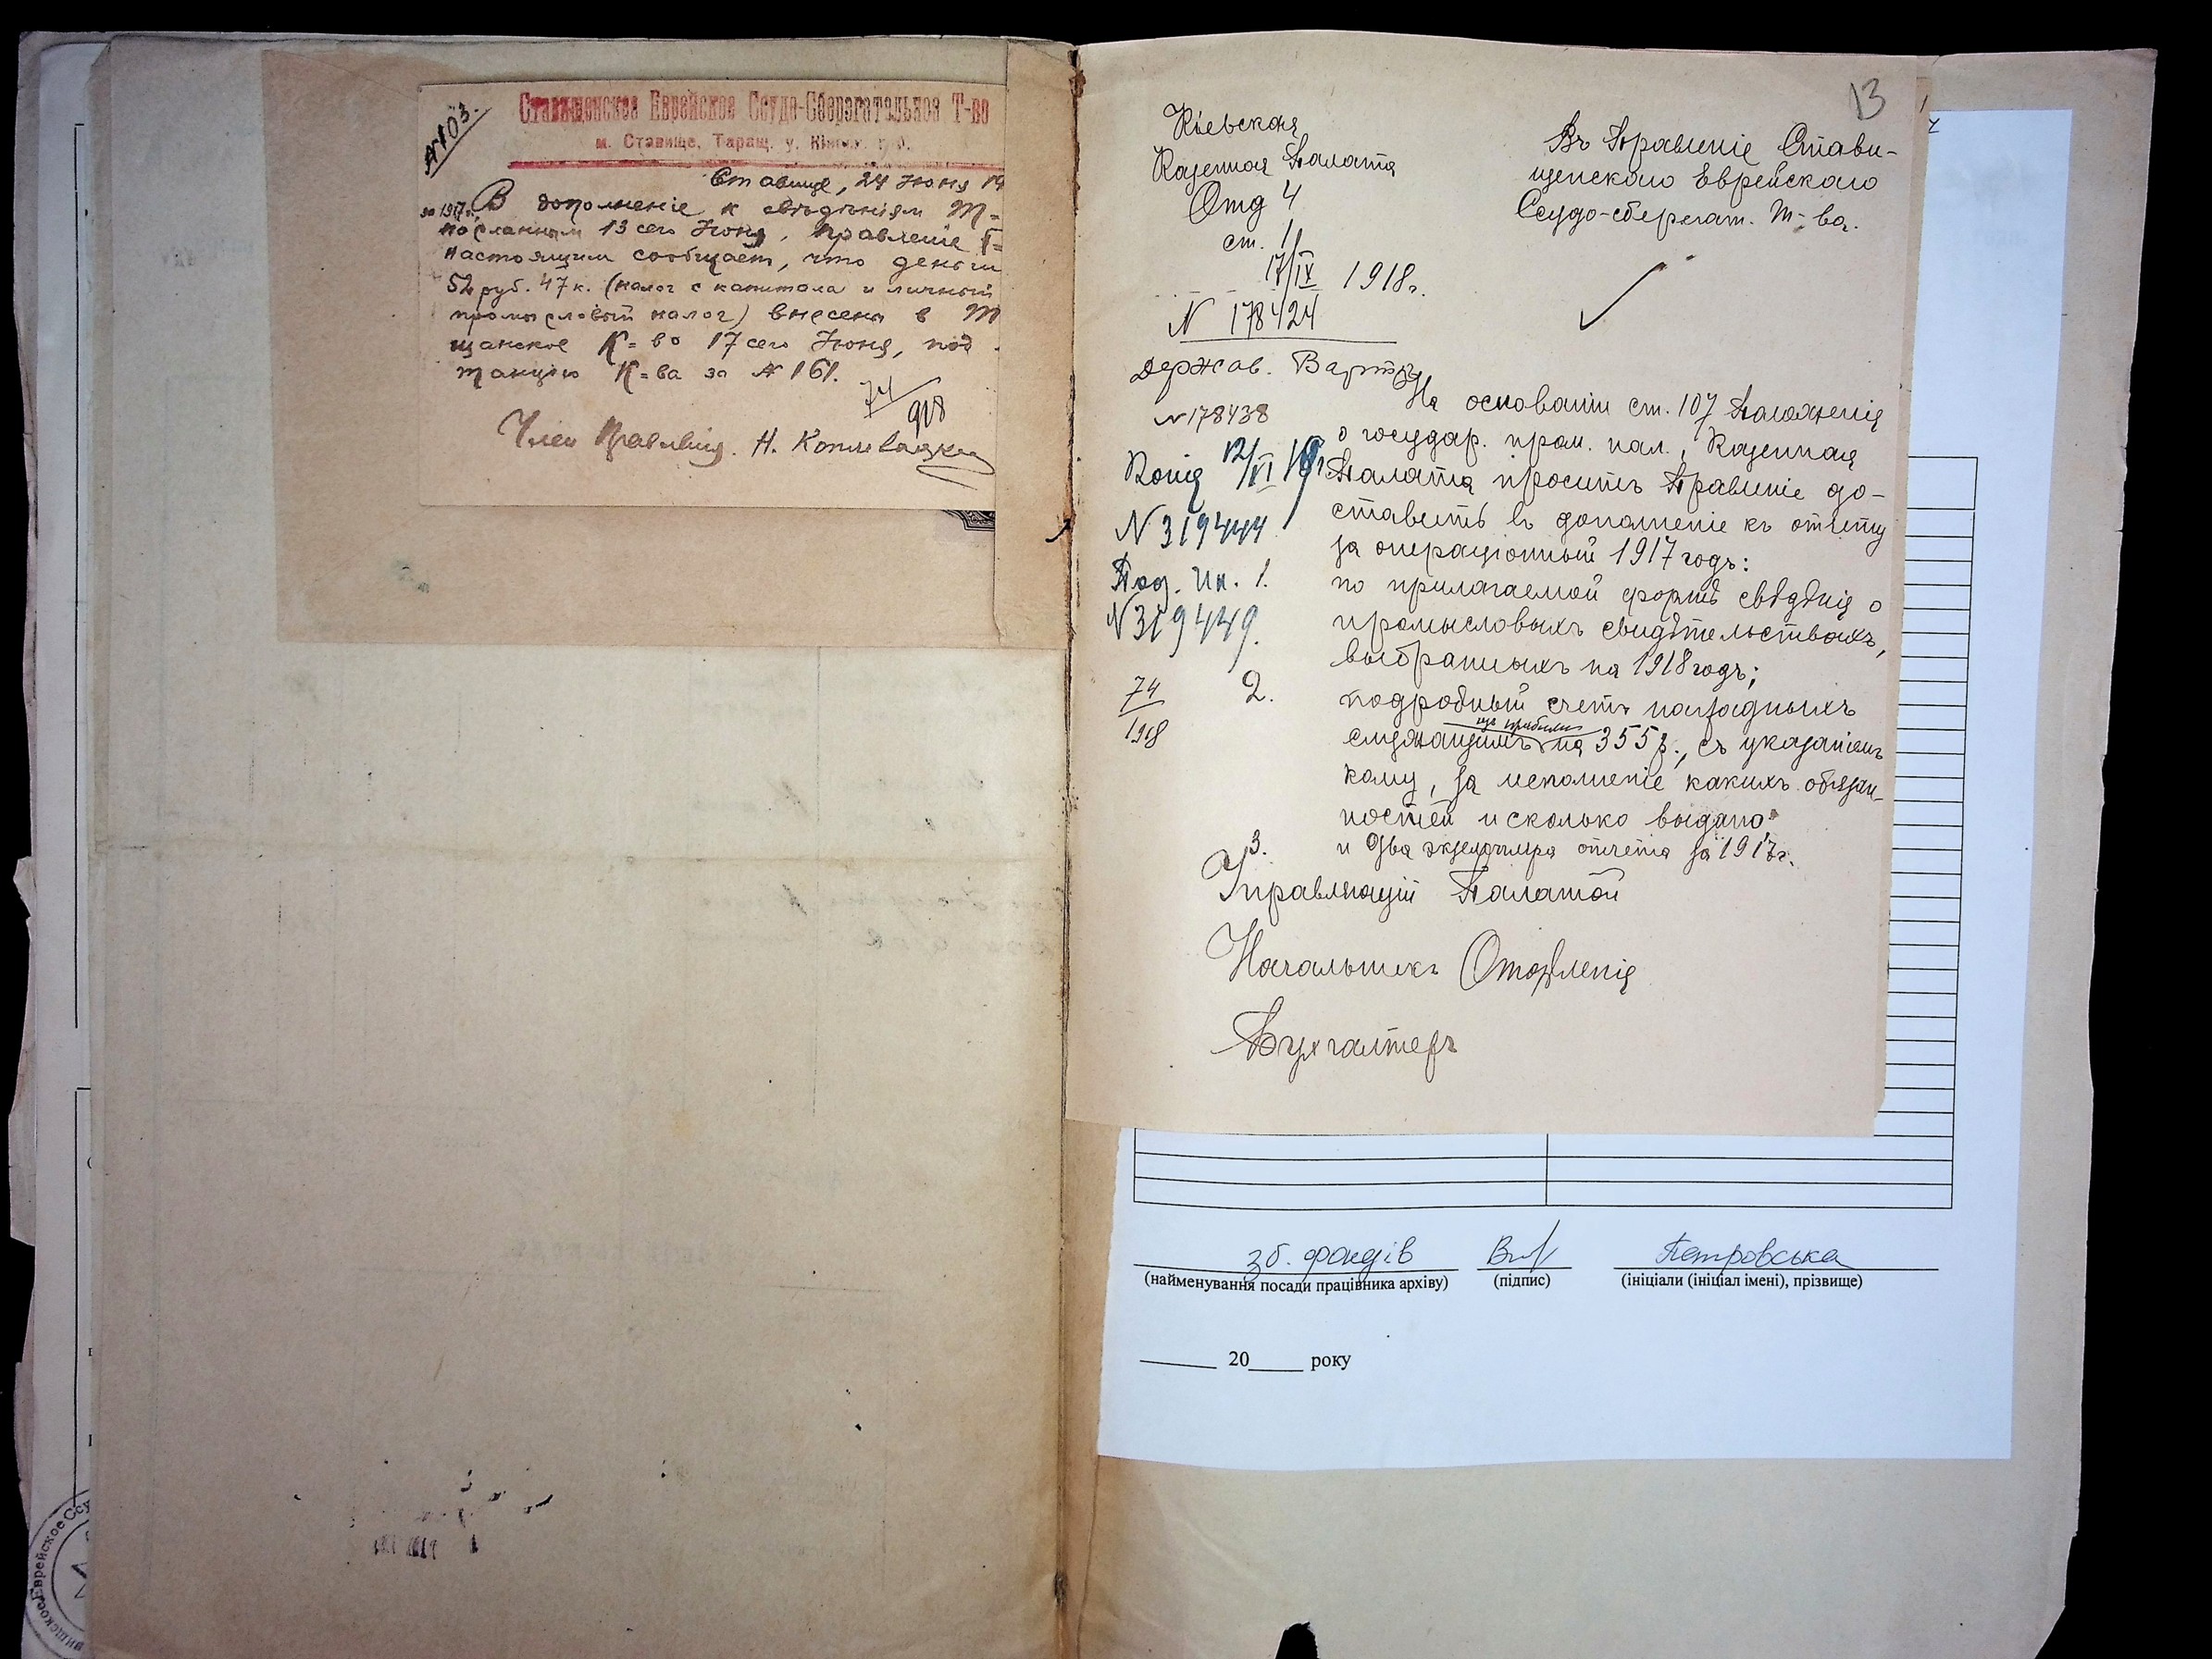 №103.
Ставищенское Еврейское Ссудо-Сберегательное Т-во
м. Ставище, Таращ. у. Кіевск. г
Ставище, 24 Июня 19
за 1917 г. В дополненіе к свѣдѣніям Т=
посланным 13 сего Июня, Правленіе
настоящим сообщает, что деньги
52 руб. 47 к. (налог с капитала и личный
промысловый налог) внесены в Т
щанское К=во 17 сего Июня, под
танцію К=ва за № 161.
74/918
Член Правленія. Н.
13
Кіевская
Казенная Палата
Отд 4
ст. 1
17/IX 1918 г.
N 178424
Въ Правленіе Стави-
щенскаго Еврейскаго
Ссудо-сберегат. Т-ва.
Держав. Варты
N 178438
Копія 12/XI
N 319444
Под. Ин. 1.
N 319449.
74
1918
На основаніи ст. 107 Положенія
о государ. пром. нал., Казенная
Палата проситъ Правленіе до-
ставить въ дополненіе къ отчету
за операціонный 1917 годъ:
по прилагаемой формѣ свѣдѣнія о
промысловыхъ свидѣтельствахъ,
выбранныхъ на 1918 годъ;
2. подробный счетъ наградныхъ
изъ прибыли
служащимъ на 355 р., съ указаніемъ
кому, за исполненіе какихъ обязан-
ностей и сколько выдано
3. и два экземпляра отчета за 1917 г.
Управляющій Палатой
Начальникъ Отдѣленія
Бухгалтеръ
зб. фондів
Петровська
(найменування посади працівника архіву) (підпис) (ініціали (ініціал імені), прізвище)
20 року
Еврейское Ссу